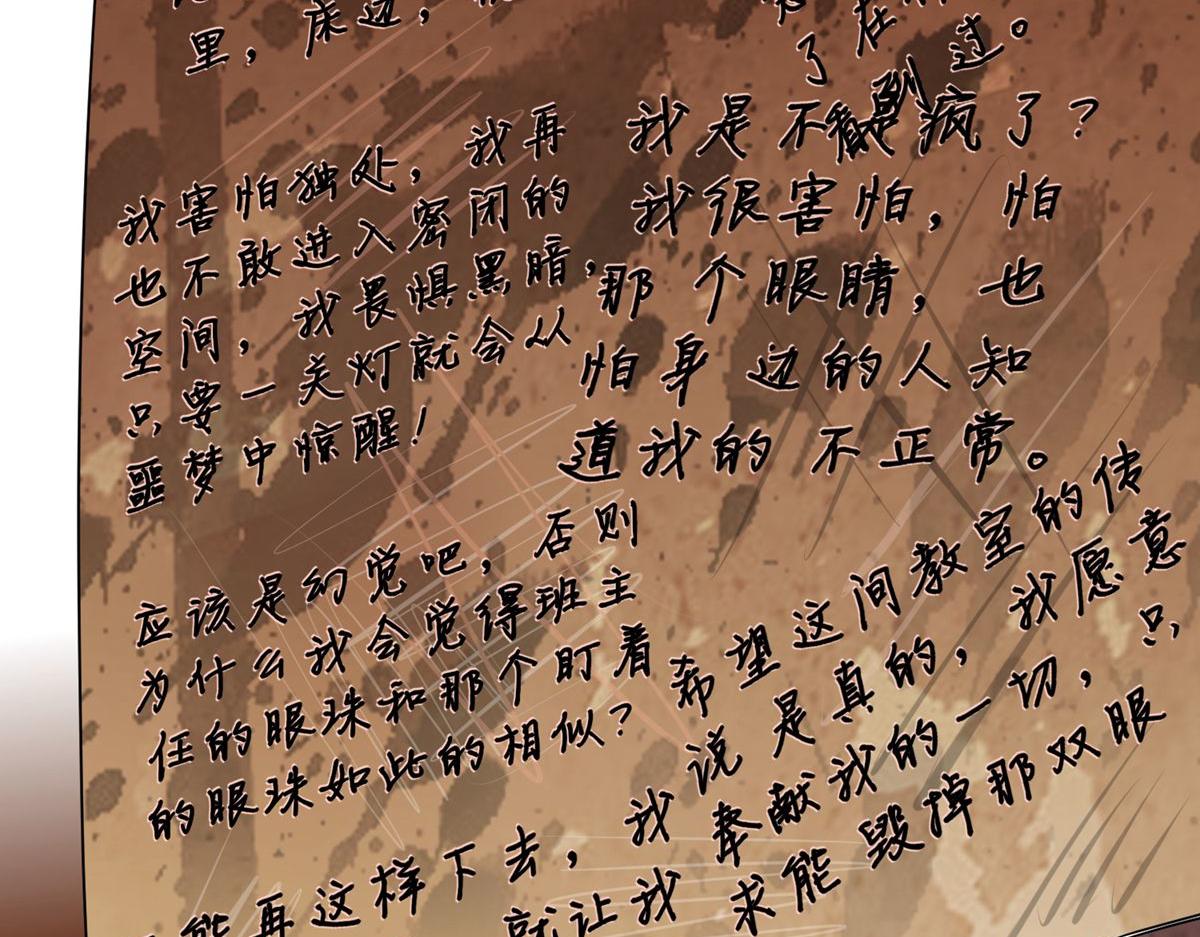 里，床边，
了在
看到过。
我害怕独处，我再
也不敢进入密闭的
空间，我畏惧黑暗，
只要一关灯就会从
噩梦中惊醒！
我是不是疯了？
我很害怕，怕
那个眼睛，也
怕身边的人知
道我的不正常。
应该是幻觉吧，否则
为什么我会觉得班主
任的眼珠和那个盯着
的眼珠如此的相似？
希望这间教室的传
说是真的，我愿意
奉献我的一切，只
求能毁掉那双眼
能再这样下去，我
就让我